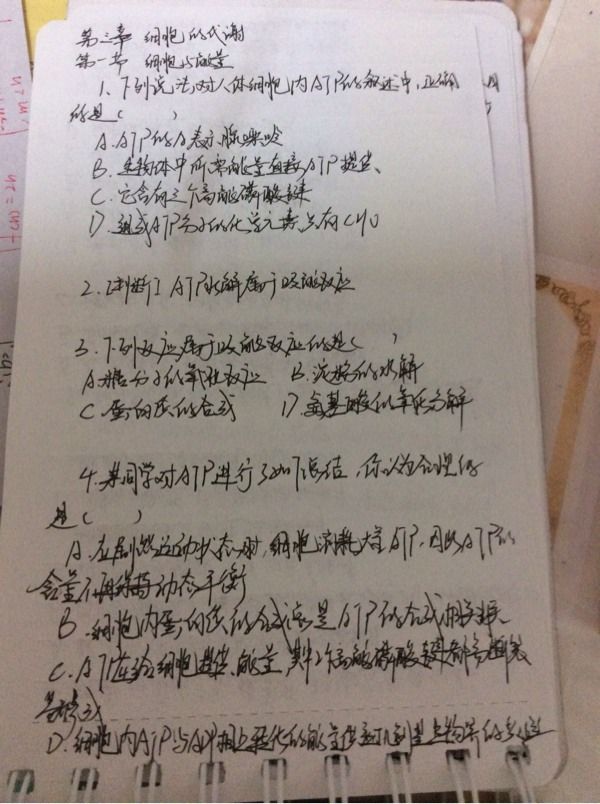 第三章 细胞的代谢
第一节 细胞与能量
1、下列说法对人体细胞内ATP的叙述中,正确
的是( )
A.ATP的A表示腺嘌呤
B.生物体中所需的能量直接ATP提供、
C.它含有三个高能磷酸键
D.组成ATP分子的化学元素只有CHO
2.[判断] ATP水解属于吸能反应
3.下列反应属于吸能反应的是( )
A.糖分子的氧化反应 B.淀粉的水解
C.蛋白质的合成 D.氨基酸的氧化分解
4.某同学对ATP进行了如下总结,你认为合理的
是( )
A.在剧烈运动状态时,细胞消耗大量ATP,因此ATP的
含量不再保持动态平衡
B.细胞内蛋白质的合成总是ATP的合成相关联
C.ATP在给细胞提供能量,其中2个高能磷酸键都
D.细胞内ATP与ADP相互转化的能量供应机制是生物界的共性